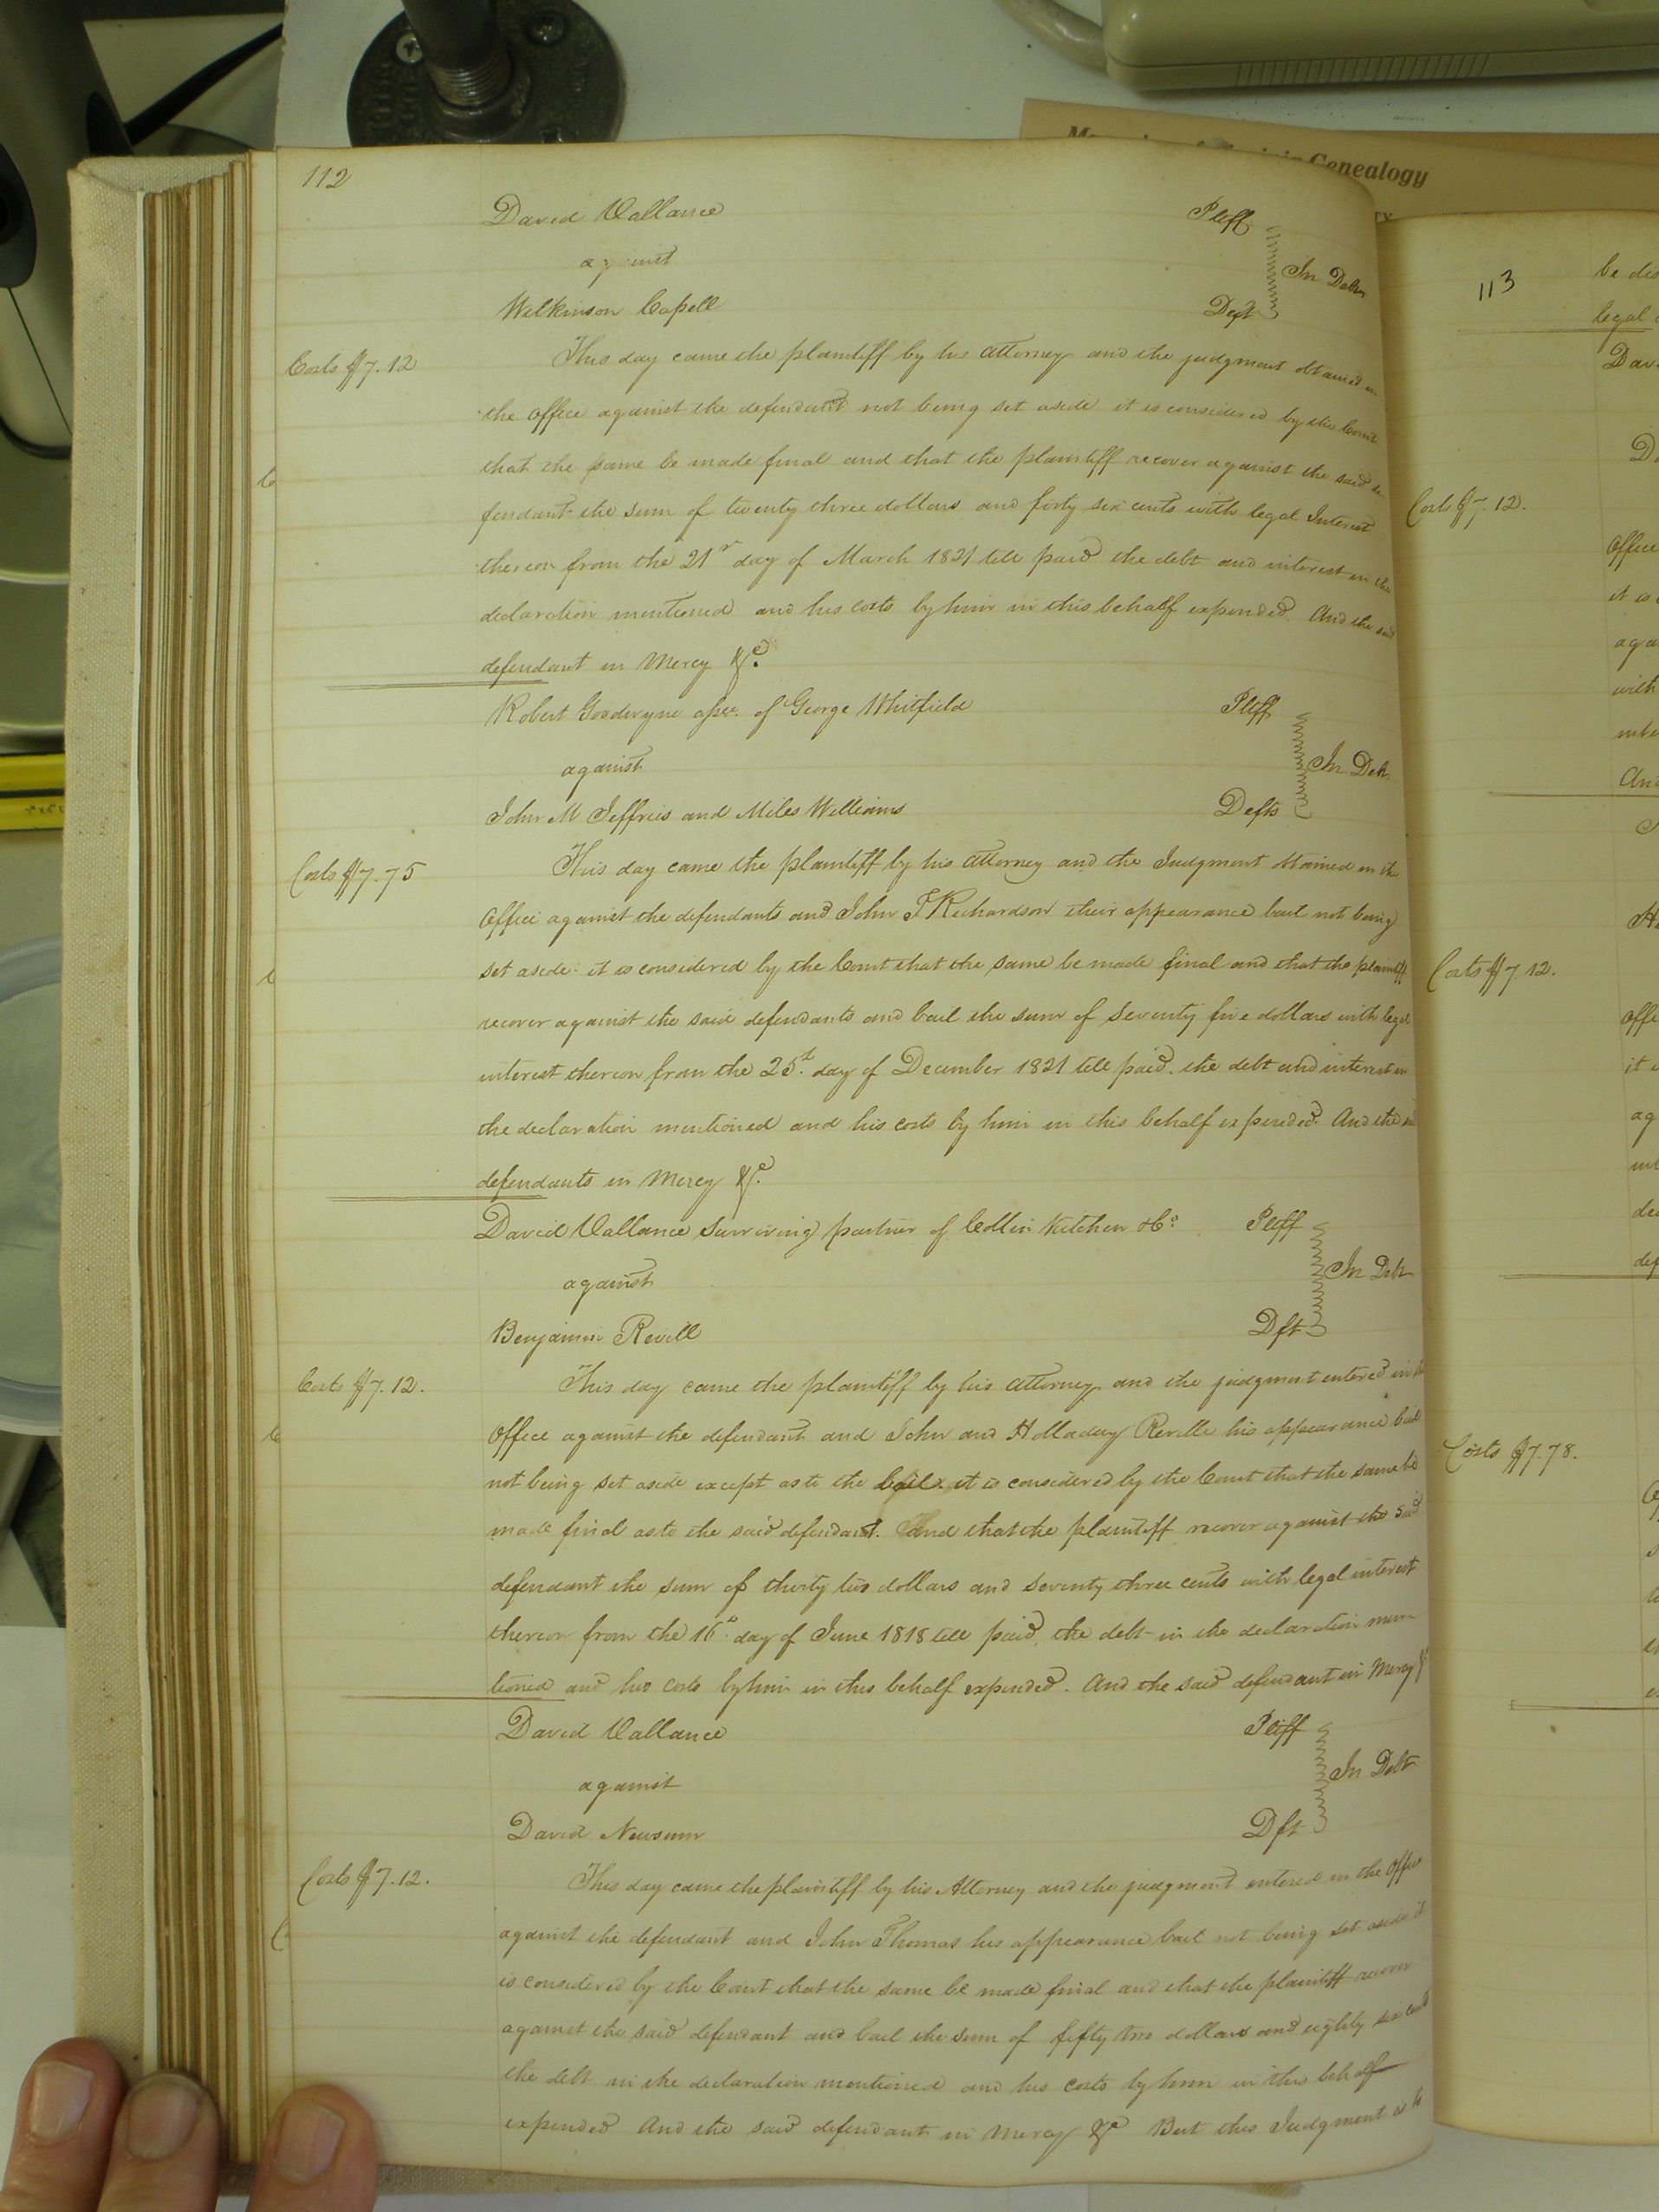 Genealogy
112
David Vallance Pltff
against In Debt
Wilkinson Capell Deft
Costs $7.12
This day came the plaintiff by his attorney and the judgment obtained in
the office against the defendant not being set aside it is considered by the Court
that the same be made final and that the plaintiff recover against the said de
fendant the sum of twenty three dollars and forty six cents with legal Interest
thereon from the 21st day of March 1821 till paid the debt and interest in the
declaration mentioned and his costs by him in this behalf expended. And the said
defendant in Mercy &c.
Robert Goodwyne assee. of George Whitfield Pltff
against In Debt
John M Jeffries and Miles Williams Defts
Costs $7.75
This day came the plaintiff by his attorney and the Judgment obtained in the
Office against the defendants and John T Richardson their appearance bail not being
set aside it is considered by the Court that the same be made final and that the plaintiff
recover against the said defendants and bail the sum of Seventy five dollars with legal
interest thereon from the 25th day of December 1821 till paid. the debt and interest in
the declaration mentioned and his costs by him in this behalf expended. And the said
defendants in Mercy &c.
David Vallance Surviving partner of Collin Kitchen & Co Pltff
against In Debt
Benjamin Revill Dft
Costs $7.12.
This day came the plaintiff by his attorney and the judgment entered in the
Office against the defendant and John and Holladay Reville his appearance bail
not being set aside except as to the bail. it is considered by the Court that the same be
made final as to the said defendant. And that the plaintiff recover against the said
defendant the sum of thirty two dollars and seventy three cents with legal interest
thereon from the 16th day of June 1818 till paid, the debt in the declaration men-
tioned and his costs by him in this behalf expended. And the said defendant in Mercy &
David Vallance Pltff
against In Debt
David Newsum Dft
Costs $7.12.
This day came the plaintiff by his Attorney and the judgment entered in the Office
against the defendant and John Thomas his appearance bail not being set aside it
is considered by the Court that the same be made final and that the plaintiff recover
against the said defendant and bail the sum of fifty two dollars and eighty six cents
the debt in the declaration mentioned and his costs by him in this behalf
expended And the said defendant in Mercy &c But this Judgment is to
113
legal
Costs $7.12.
Costs $7.12.
Costs $7.78.